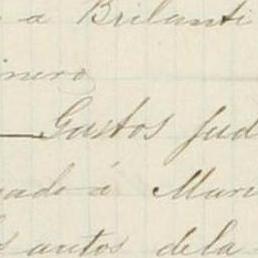 a Brilanti
inero
Gastos Jud
gado á Mari
s autos dela